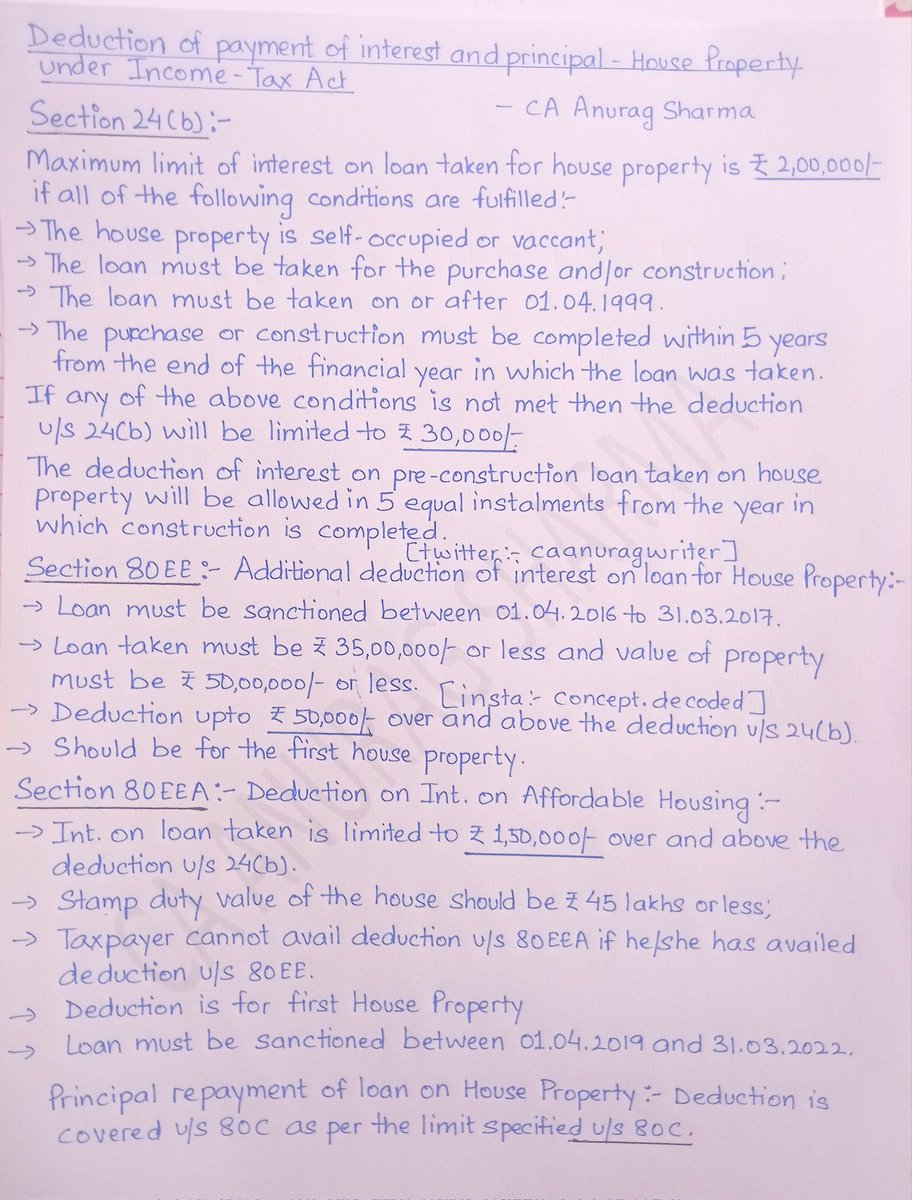 Deduction of payment of interest and principal - House Property
under Income-Tax Act
- CA Anurag Sharma
Section 24(b):-
Maximum limit of interest on loan taken for house property is ₹ 2,00,000/-
if all of the following conditions are fulfilled:-
→ The house property is self-occupied or vaccant;
→ The loan must be taken for the purchase and/or construction;
→ The loan must be taken on or after 01.04.1999.
→ The purchase or construction must be completed within 5 years
from the end of the financial year in which the loan was taken.
If any of the above conditions is not met then the deduction
u/s 24(b) will be limited to ₹ 30,000/-
The deduction of interest on pre-construction loan taken on house
property will be allowed in 5 equal instalments from the year in
which construction is completed.
[twitter:- caanuragwriter]
Section 80EE:- Additional deduction of interest on loan for House Property:-
→ Loan must be sanctioned between 01.04.2016 to 31.03.2017.
→ Loan taken must be ₹ 35,00,000/- or less and value of property
must be ₹ 50,00,000/- or less. [insta:- concept.decoded]
→ Deduction upto ₹ 50,000/- over and above the deduction u/s 24(b).
→ Should be for the first house property.
Section 80EEA:- Deduction on Int. on Affordable Housing:-
→ Int. on loan taken is limited to ₹ 1,50,000/- over and above the
deduction u/s 24(b).
→ Stamp duty value of the house should be ₹ 45 lakhs or less;
→ Taxpayer cannot avail deduction u/s 80EEA if he/she has availed
deduction u/s 80EE.
→ Deduction is for first House Property
→ Loan must be sanctioned between 01.04.2019 and 31.03.2022.
Principal repayment of loan on House Property:- Deduction is
covered u/s 80C as per the limit specified u/s 80C.
CA ANURAG SHARMA